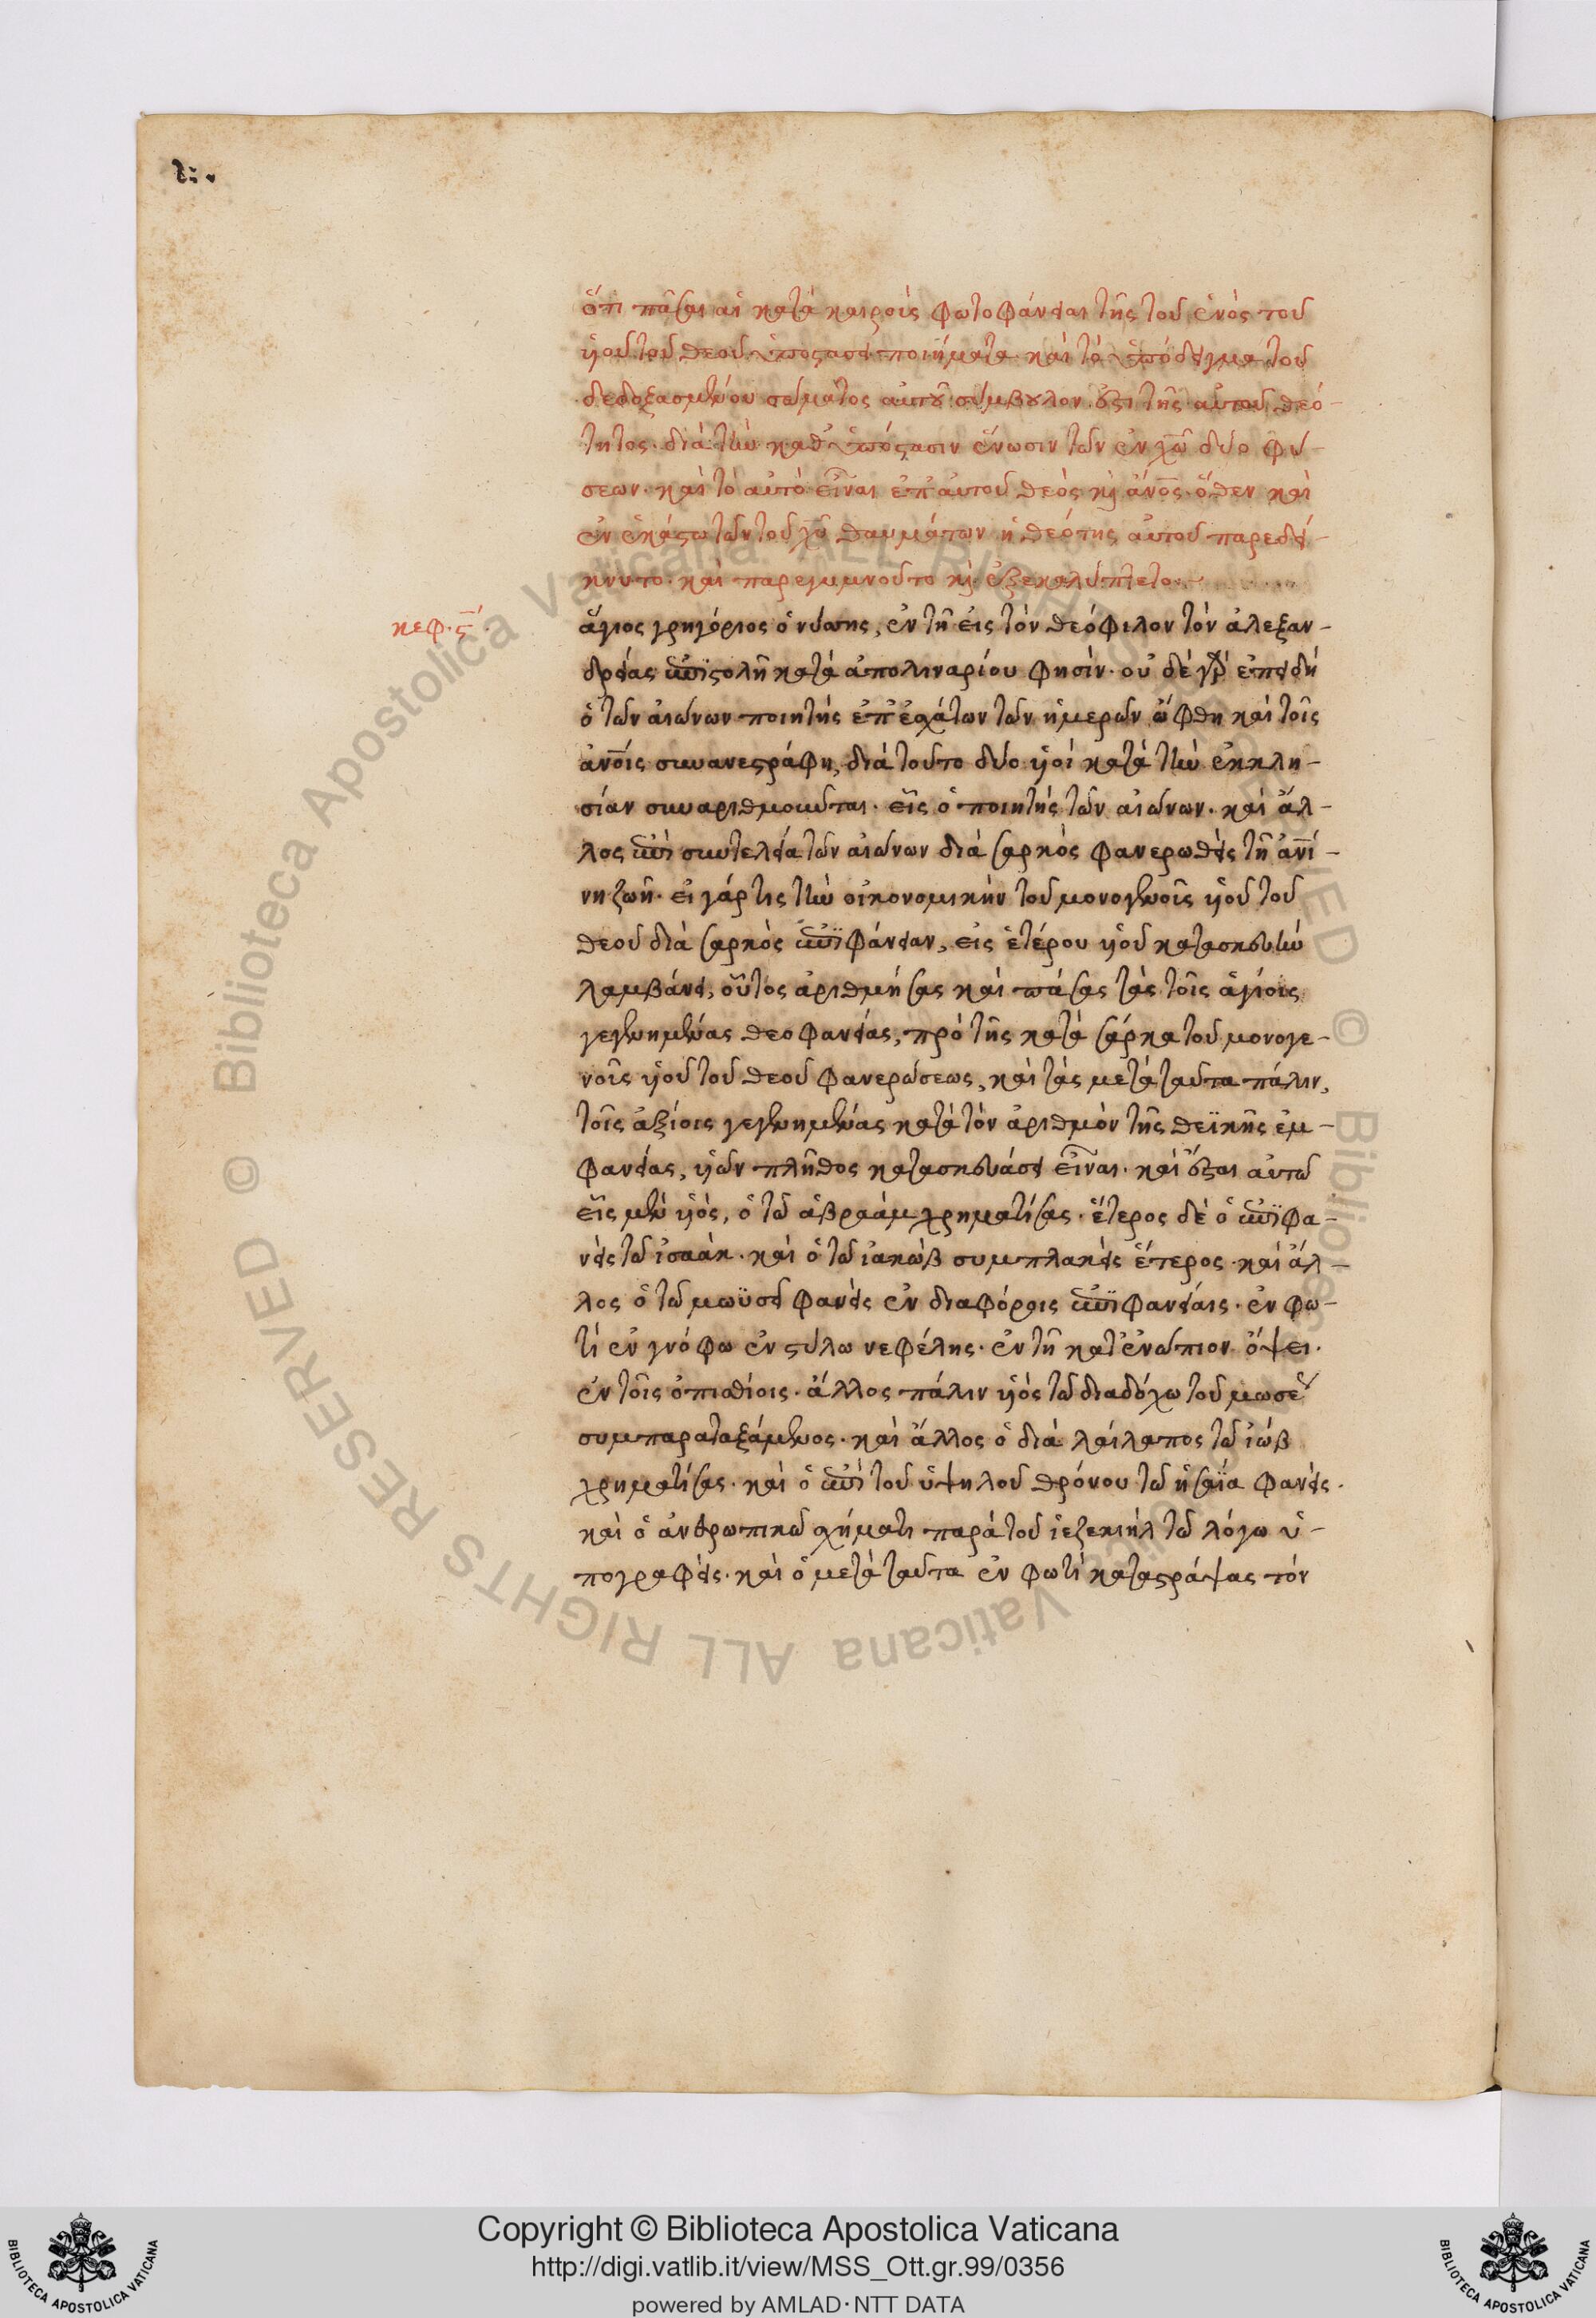 ὅτι πᾶσαι αἱ κατὰ καιροὺς φωτοφάνειαι τῆς τοῦ ἑνὸς τοῦ
ὑοῦ τοῦ θεοῦ ὑποστάσει ποιήματα· καὶ τὸ ὑπόδειγμα τοῦ
δεδοξασμένου σώματος αὐτοῦ σύμβουλον ἔξι τῆς αὐτοῦ θεό-
τητος· διὰ τὴν καθ' ὑπόστασιν ἕνωσιν τῶν ἐν χω̅ δύο φύ-
σεων· καὶ τὸ αὐτὸ εἶναι ἐπ' αὐτοῦ θεὸς κὶ ἄνο̅ς· ὅθεν καὶ
ἐν ἑκάστω τῶν τοῦ χυ̅ θαυμάτων ἡ θεότης αὐτοῦ παρεδεί-
κνυτο· καὶ παρεγυμνοῦτο κὶ ἐξεκαλύπτετο
κεφ. ς´
ἅγιος γρηγόριος ὁ νύσης, ἐν τῆ εἰς τὸν θεόφιλον τὸν ἀλεξαν-
δρείας ἐπιστολῆ κατὰ ἀπολιναρίου φησίν· οὐ δὲ γὰρ ἐπειδὴ
ὁ τῶν αἰώνων ποιητὴς ἐπ' ἐσχάτων τῶν ἡμερῶν ὤφθη καὶ τοῖς
ἀνο̅ις συνανεστράφη, διὰ τοῦτο δύο ὑοὶ κατὰ τὴν ἐκκλη-
σίαν συναριθμοῦνται· εἷς ὁ ποιητὴς τῶν αἰώνων· καὶ ἄλ-
λος ἐπὶ συντελεία τῶν αἰώνων διὰ σαρκὸς φανερωθεὶς τῆ ἀνί-
νη ζωῆ· εἰ γάρ τις τὴν οἰκονομικὴν τοῦ μονογενοῦς ὑοῦ τοῦ
θεοῦ διὰ σαρκὸς ἐπιφάνειαν, εἰς ἑτέρου ὑοῦ κατασκευὴν
λαμβάνει, οὗτος ἀριθμήσας καὶ πάσας τὰς τοῖς ἁγίοις
γεγενημένας θεοφανείας, πρὸ τῆς κατὰ σάρκα τοῦ μονογε-
νοῦς ὑοῦ τοῦ θεοῦ φανερώσεως, καὶ τὰς μετὰ ταῦτα πάλιν,
τοῖς ἀξίοις γεγενημένας κατὰ τὸν ἀριθμὸν τῆς θεϊκῆς ἐμ-
φανείας, ὑῶν πλῆθος κατασκευάσει εἶναι· καὶ ἔσται αὐτῶ
εἷς μὲν ὑός, ὁ τῶ ἀβραὰμ χρηματίσας· ἕτερος δὲ ὁ ἐπιφα-
νεὶς τῶ ἰσαάκ· καὶ ὁ τῶ ἰακὼβ συμπλακεὶς ἕτερος· καὶ ἄλ-
λος ὁ τῶ μωϋσεῖ φανεὶς ἐν διαφόροις ἐπιφανείαις· ἐν φω-
τὶ ἐν γνόφω ἐν στύλω νεφέλης· ἐν τῆ κατ' ἐνώπιον ὄψει·
ἐν τοῖς ὀπισθίοις· ἄλλος πάλιν ὑὸς τῶ διαδόχω τοῦ μωσέ
συμπαραταξάμενος· καὶ ἄλλος ὁ διὰ λαίλαπος τῶ ἰὼβ
χρηματίσας· καὶ ὁ ἐπὶ τοῦ ὑψηλοῦ θρόνου τῶ ἡσαΐα φανείς·
καὶ ὁ ἀνθρωπικῶ σχήματι παρὰ τοῦ ἰεζεκιὴλ τῶ λόγω ὑ-
πογραφείς· καὶ ὁ μετὰ ταῦτα ἐν φωτὶ καταστράψας τὸν
© Biblioteca Apostolica Vaticana ALL RIGHTS RESERVED
© Biblioteca Apostolica Vaticana ALL RIGHTS RESERVED
Copyright © Biblioteca Apostolica Vaticana
http://digi.vatlib.it/view/MSS_Ott.gr.99/0356
powered by AMLAD·NTT DATA
BIBLIOTECA APOSTOLICA VATICANA
BIBLIOTECA APOSTOLICA VATICANA